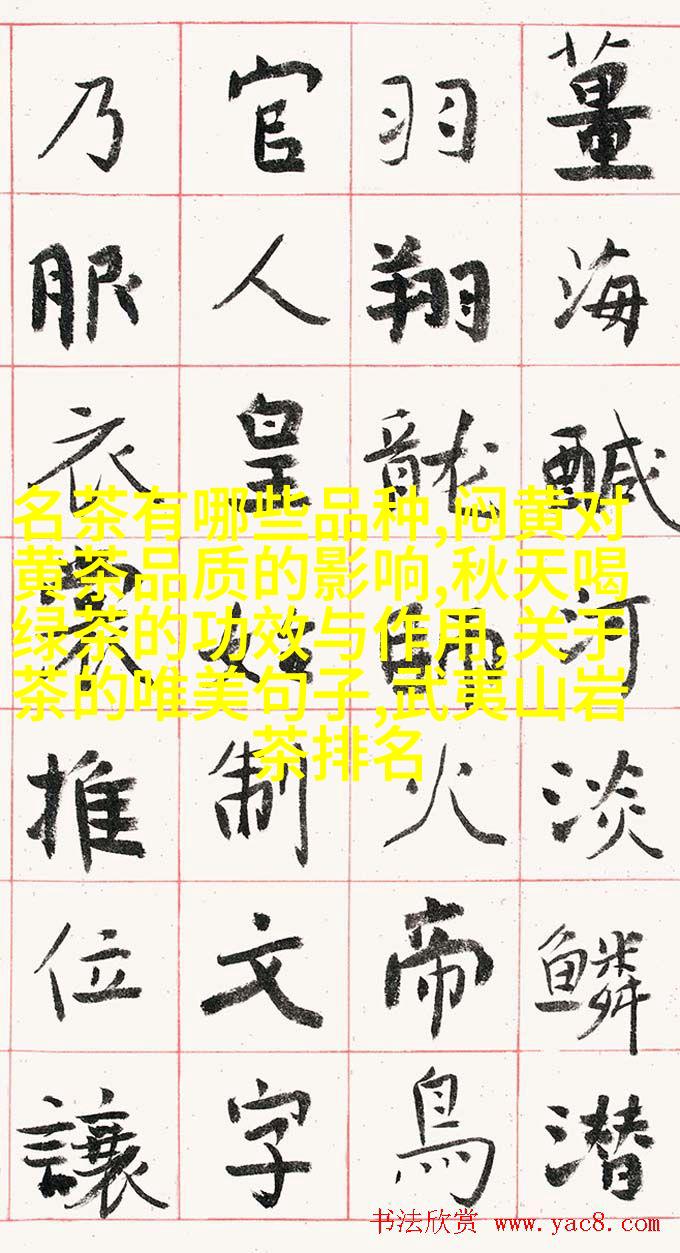 薑海醎河淡鱗潛
羽翔龍師火帝鳥
官人皇始制文字
乃服衣裳推位讓
名茶有哪些品种,闷黄对
黄茶品质的影响,秋天喝
绿茶的功效与作用,关于
茶的唯美句子,武夷山岩
茶排名
书法欣赏 www.yac8.com